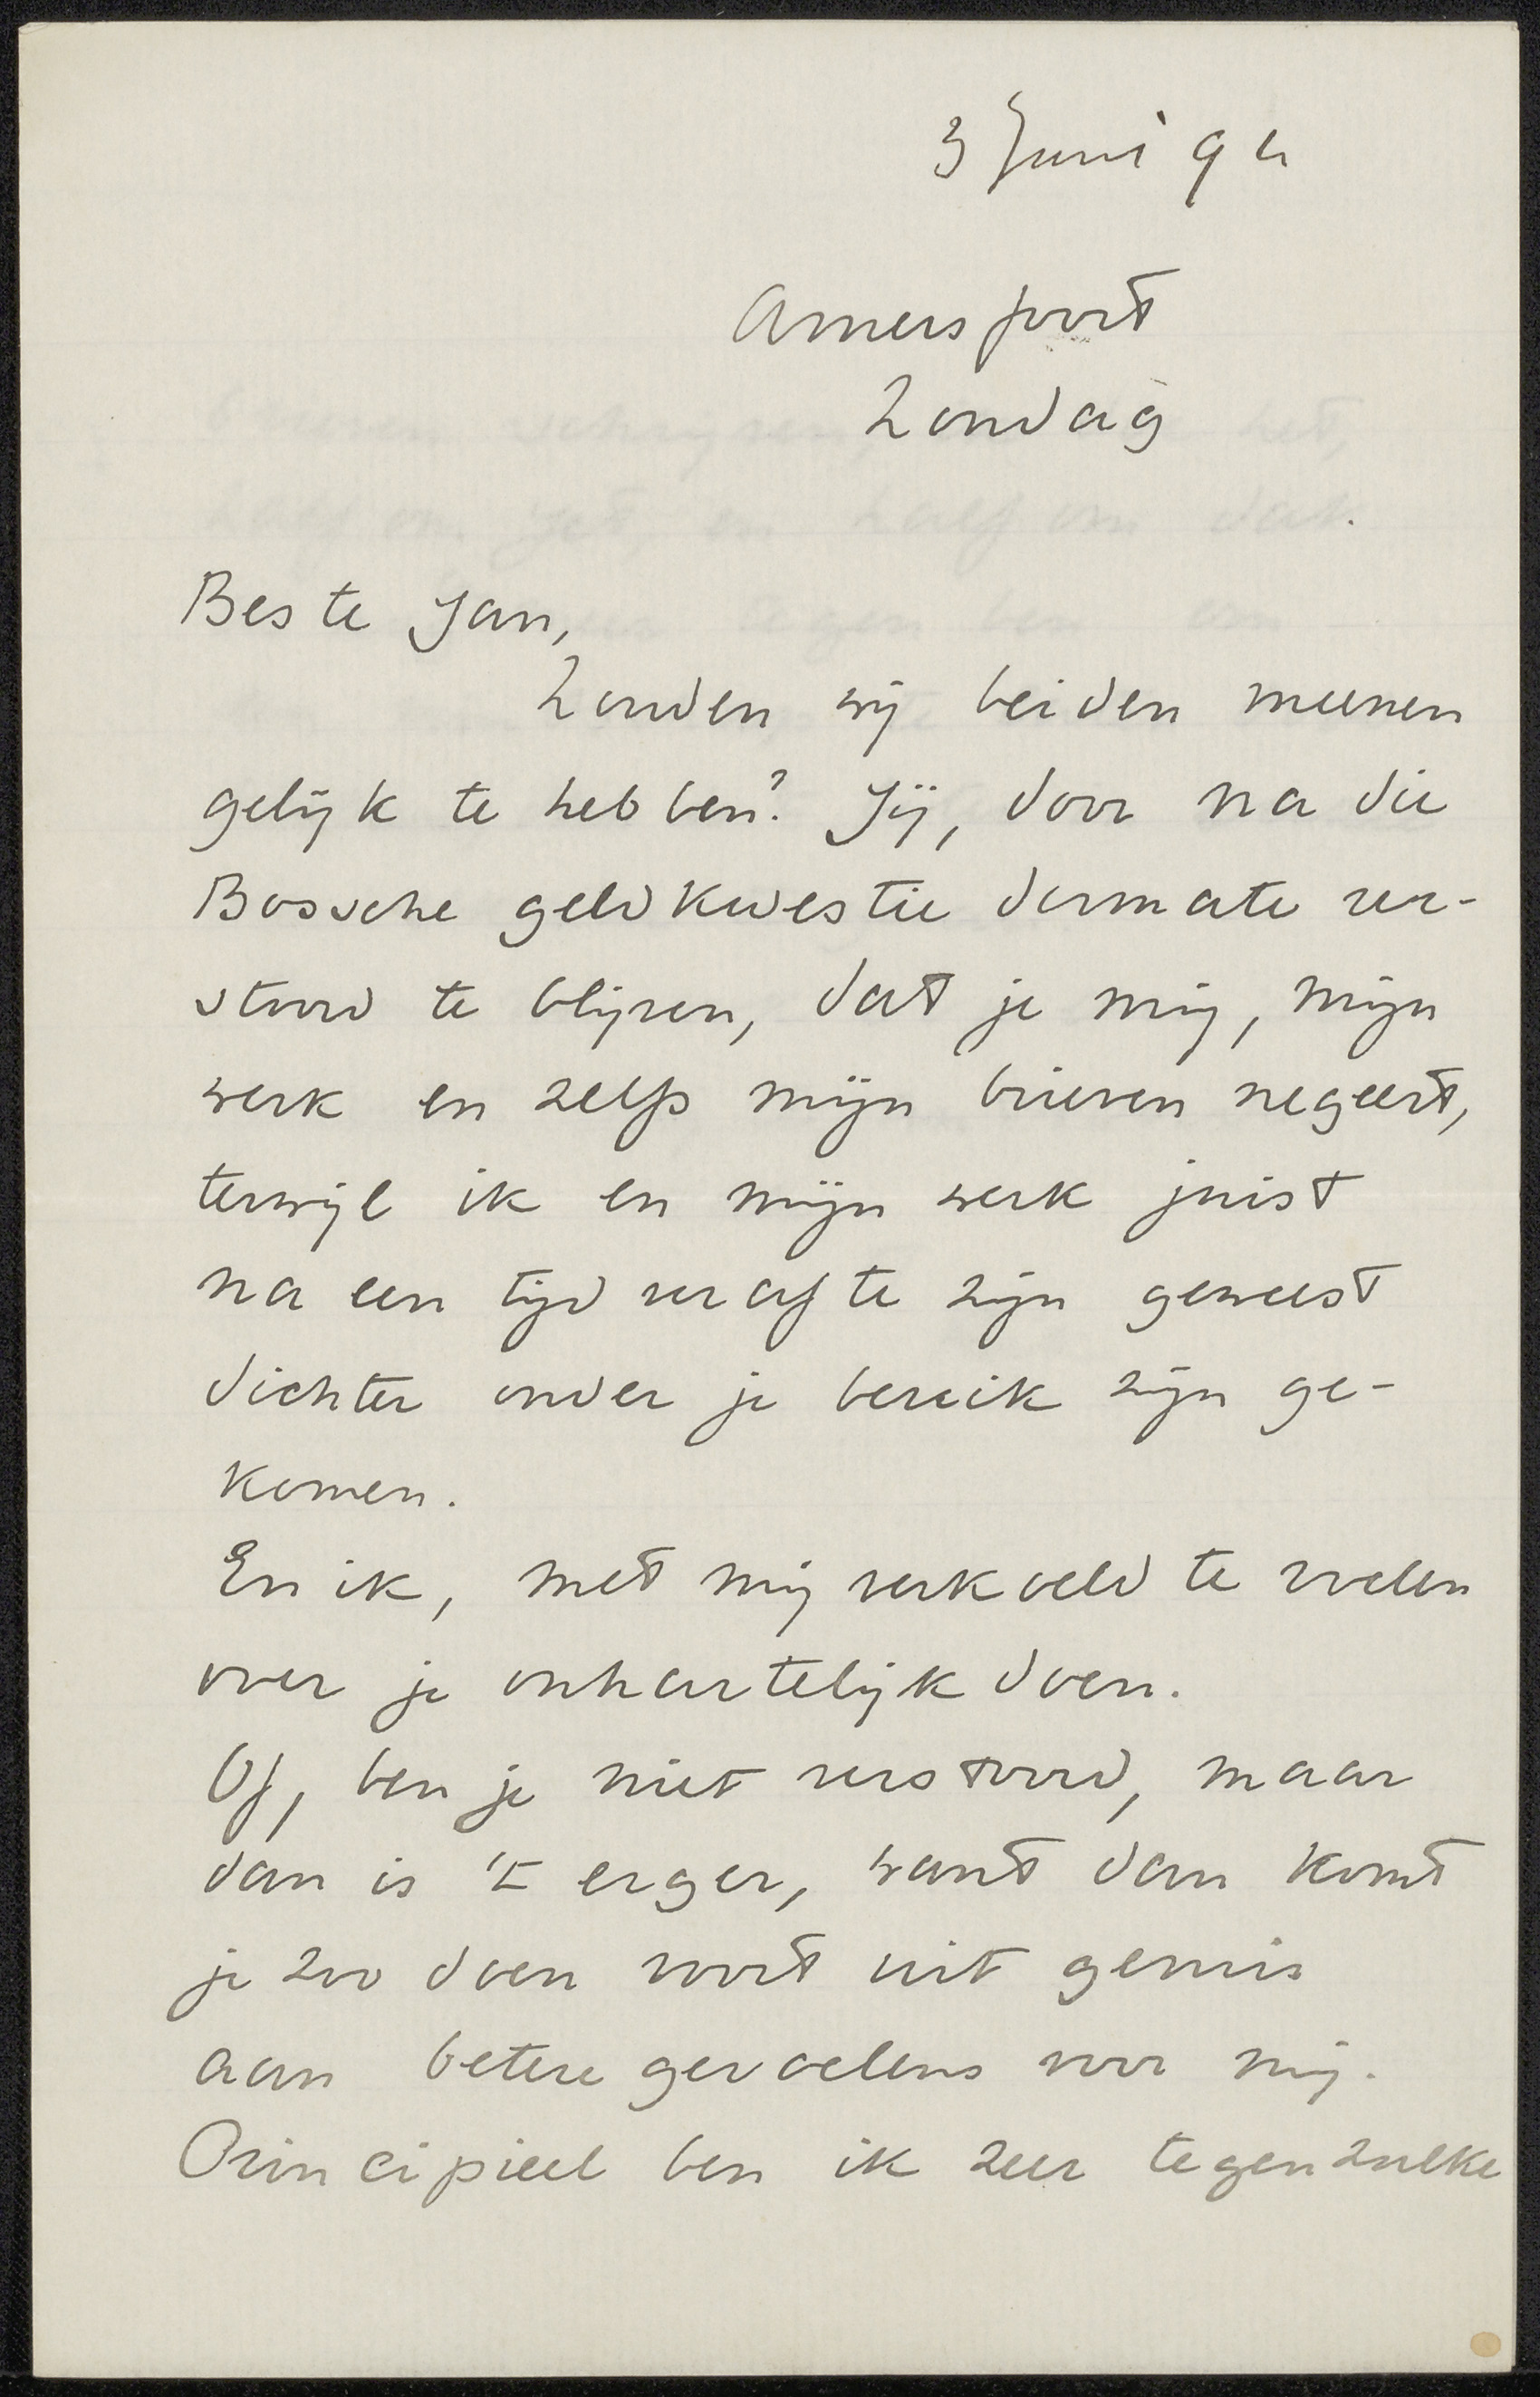 3 Juni 94
Amersfoort
Zondag
Beste Jan,
Zouden wij beiden meenen
gelijk te hebben? Jij, door na die
Bossche geldkwestie dermate ver-
stoord te blijven, dat je mij, mijn
werk en zelfs mijn brieven negeert,
terwijl ik en mijn werk juist
na een tijd ver af te zijn geweest
dichter onder je bereik zijn ge-
komen.
En ik, met mij verkoeld te voelen
over je onhartelijk doen.
Of, ben je niet verstoord, maar
dan is 't erger, want dan komt
je zoo doen voort uit gemis
aan betere gevoelens voor mij.
Principieel ben ik zeer tegen zulke